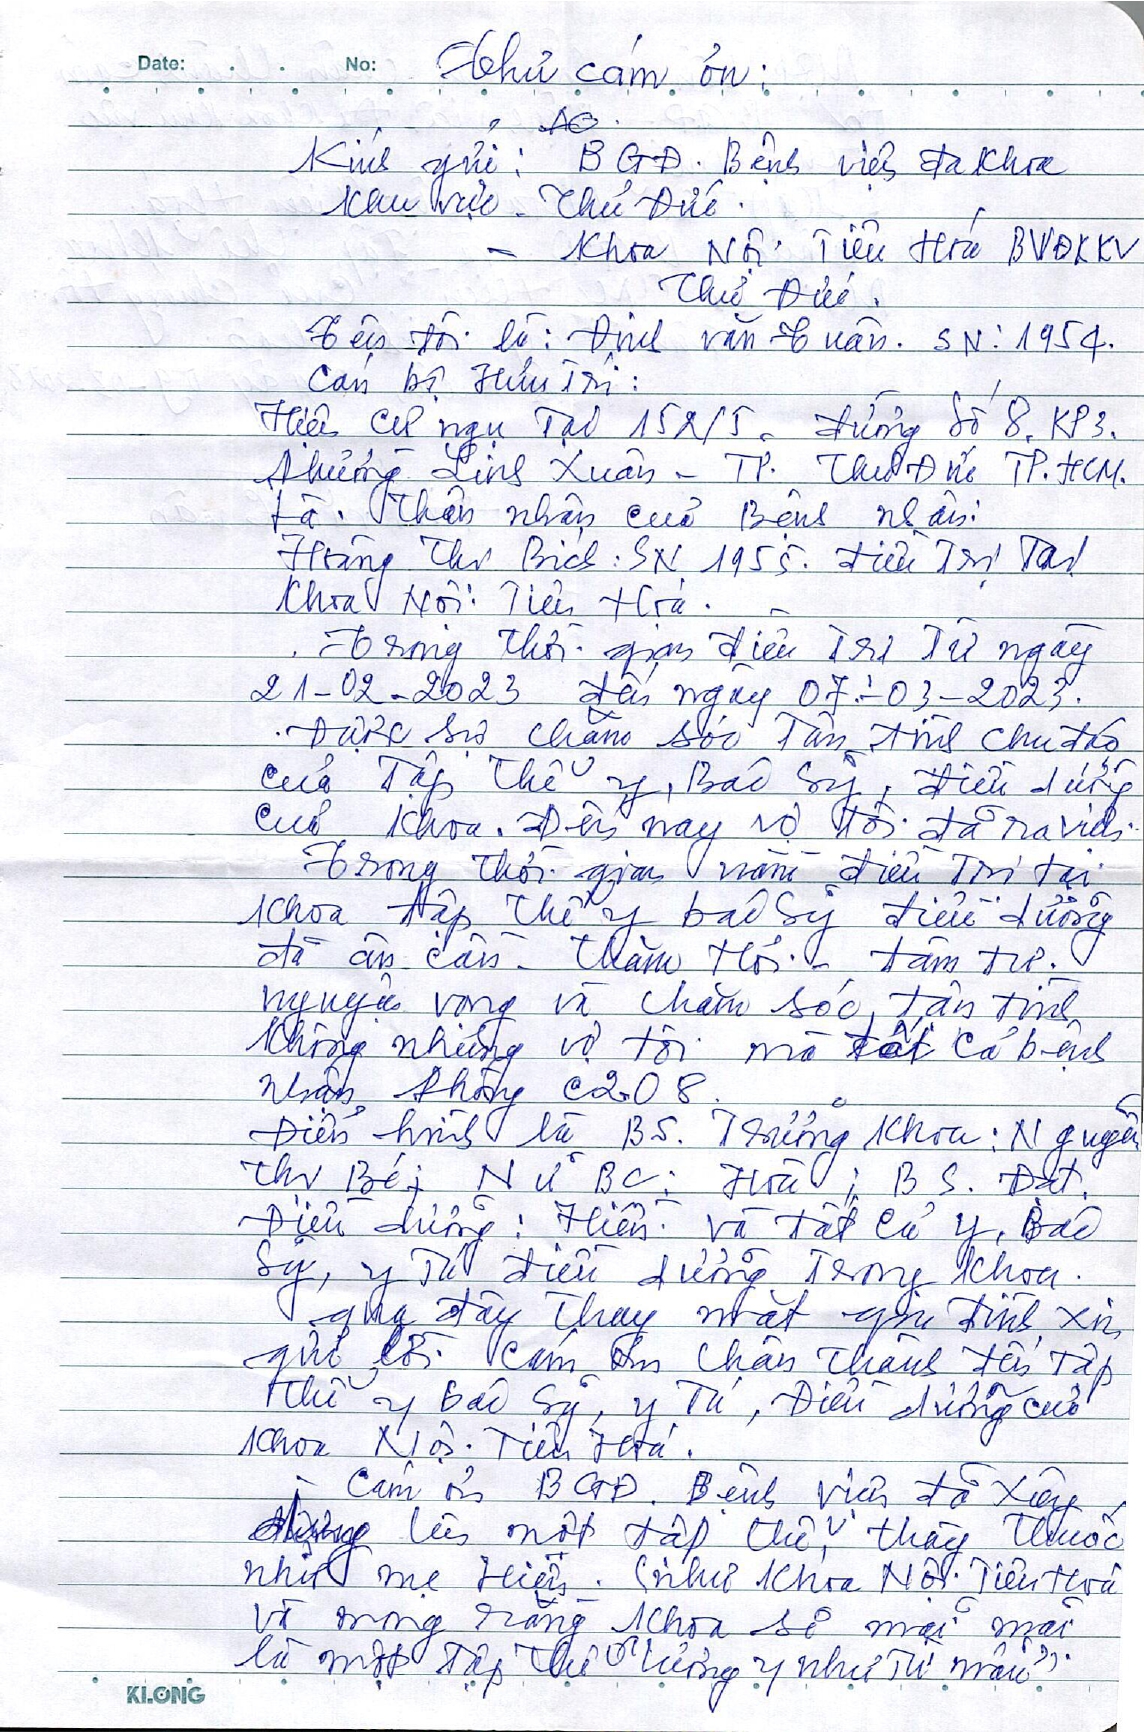 Date: . . No: Thư cám ơn:
Kính gửi: BGĐ. Bệnh viện đa khoa
Khu vực - Thủ Đức.
- Khoa Nội Tiêu Hoá BVĐKKV
Thủ Đức.
Tên tôi là: Đinh văn Tuấn. SN: 1954.
Cán bộ Hưu Trí:
Hiện cư ngụ Tại 152/5. đường Số 8. KP3.
Phường Linh Xuân - TP. Thủ Đức TP. HCM.
Là thân nhân của Bệnh nhân:
Hoàng Thị Bích: SN 1955. điều Trị Tại
Khoa Nội Tiêu Hoá.
. Trong thời gian điều Trị Từ ngày
21-02-2023 đến ngày 07-03-2023.
. Được sự chăm sóc Tận tình chu đáo
của Tập thể y, Bác Sỹ, điều dưỡng
của khoa. Đến nay vợ tôi đã ra viện.
Trong thời gian nằm điều Trị tại
khoa tập thể y bác Sỹ điều dưỡng
đã ân cần - thăm Hỏi - tâm tư.
nguyện vọng và chăm sóc, tận tình
không những vợ tôi mà tất cả bệnh
nhân phòng C208.
Điển hình là BS. Trưởng khoa: Nguyễn
Thị Bé; Nữ BC: Hoà; BS. Đạt.
Điều dưỡng: Hiền. và tất cả y, Bác
Sỹ, y Tá điều dưỡng Trong khoa.
qua đây thay mặt gia đình xin
gửi lời cám ơn chân thành đến tập
thể y bác Sỹ, y Tá, Điều dưỡng của
khoa Nội Tiêu Hoá.
- Cám ơn BGĐ. Bệnh viện đã Xây
dựng lên một tập thể, thầy thuốc
như mẹ Hiền. (như khoa Nội Tiêu Hoá
và mong rằng khoa sẽ mãi mãi
là một tập thể "Lương y như Từ mẫu".
KLONG